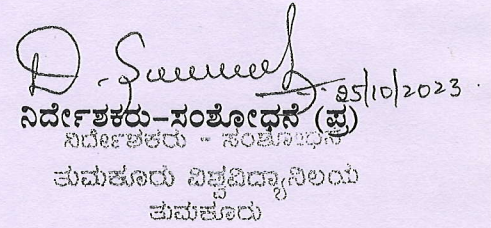 25/10/2023.
ನಿರ್ದೇಶಕರು-ಸಂಶೋಧನೆ (ಪ್ರ)
ನಿರ್ದೇಶಕರು - ಸಂಶೋಧನೆ
ತುಮಕೂರು ವಿಶ್ವವಿದ್ಯಾನಿಲಯ
ತುಮಕೂರು